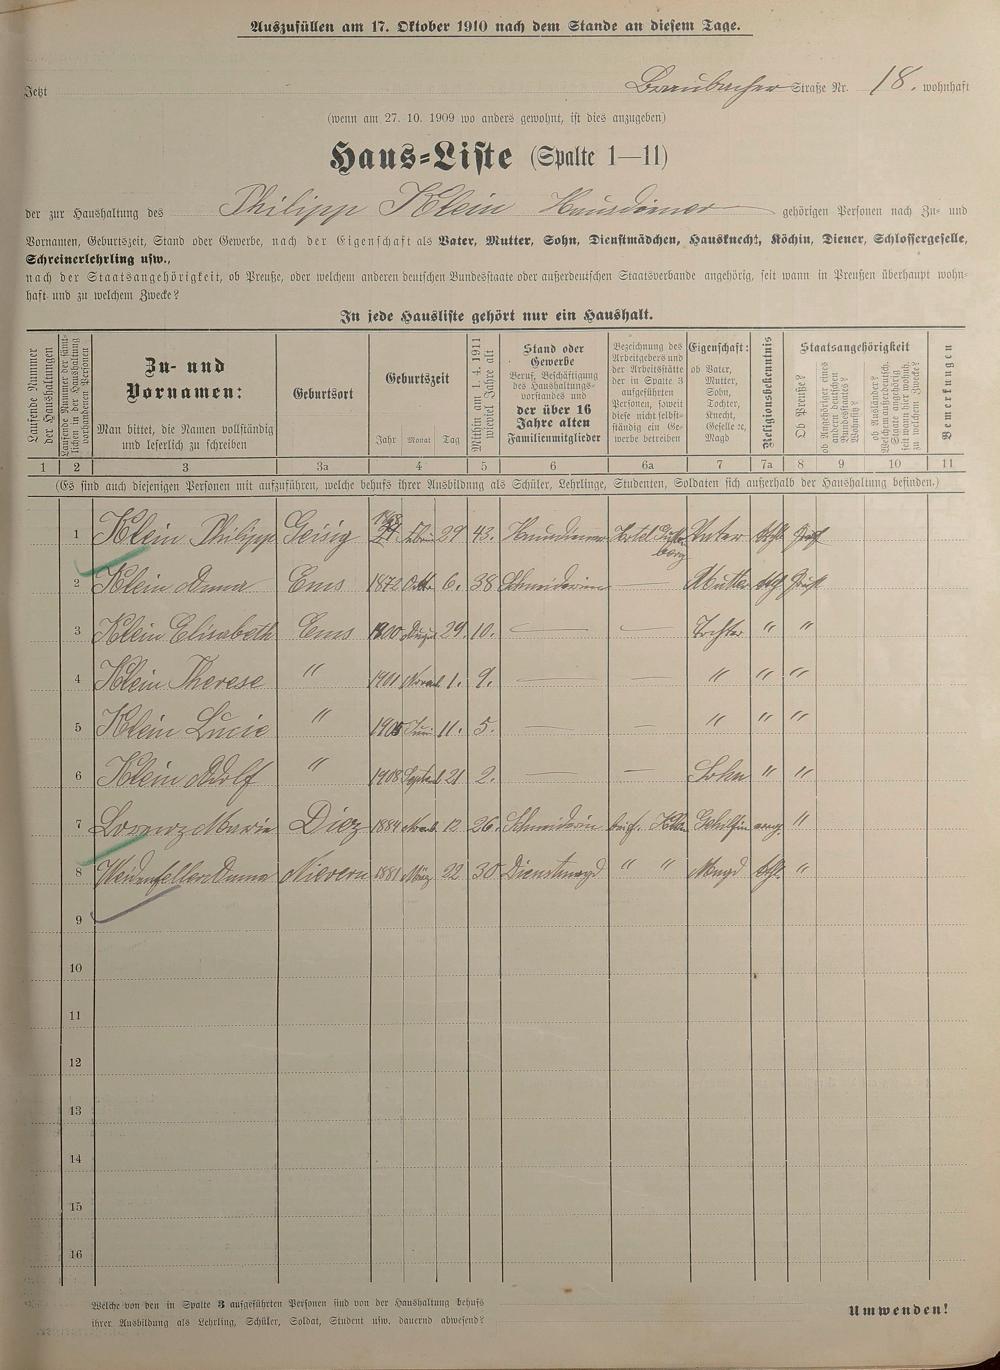 Auszufüllen am 17. Oktober 1910 nach dem Stande an diesem Tage.
Jetzt Braubacher Straße Nr. 18. wohnhaft
(wenn am 27. 10. 1909 wo anders gewohnt, ist dies anzugeben)
Haus-Liste (Spalte 1—11)
der zur Haushaltung des Philipp Klein Hausdiener gehörigen Personen nach Zu- und
Vornamen, Geburtszeit, Stand oder Gewerbe, nach der Eigenschaft als Vater, Mutter, Sohn, Dienstmädchen, Hausknecht, Köchin, Diener, Schlossergeselle,
Schreinerlehrling usw.,
nach der Staatsangehörigkeit, ob Preuße, oder welchem anderen deutschen Bundesstaate oder außerdeutschen Staatsverbande angehörig, seit wann in Preußen überhaupt wohn-
haft und zu welchem Zwecke?
In jede Hausliste gehört nur ein Haushalt.
Laufende Nummer
der Haushaltungen
Laufende Nummer der sämt-
lichen in der Haushaltung
vorhandenen Personen
Zu- und
Vornamen:
Man bittet, die Namen vollständig
und leserlich zu schreiben
Geburtsort
Geburtszeit
Jahr Monat Tag
Mithin am 1. 4. 1911
wieviel Jahre alt
Stand oder
Gewerbe
Beruf, Beschäftigung
des Haushaltungs-
vorstandes und
der über 16
Jahre alten
Familienmitglieder
Bezeichnung des
Arbeitgebers und
der Arbeitsstätte
der in Spalte 3
aufgeführten
Personen, soweit
diese nicht selbst-
ständig ein Ge-
werbe betreiben
Eigenschaft:
ob Vater,
Mutter,
Sohn,
Tochter,
Knecht,
Geselle ꝛc,
Magd
Religionsbekenntnis
Staatsangehörigkeit
Ob Preuße?
ob Angehöriger eines
andern deutschen
Bundesstaates?
Welchem?
ob Ausländer?
Welchem außerdeutsch.
Staate angehörig,
seit wann hier wohnh.
zu welchem Zwecke?
Bemerkungen
1 2 3 3a 4 5 6 6a 7 7a 8 9 10 11
(Es sind auch diejenigen Personen mit aufzuführen, welche behufs ihrer Ausbildung als Schüler, Lehrlinge, Studenten, Soldaten sich außerhalb der Haushaltung befinden.)
1 Klein Philipp Geisig 29 43. Hausdiener Hotel Vater
2 Klein Anna Ems 1872 Oktbr 6. 38 Schneiderin — Mutter kath
3 Klein Elisabeth Ems 1900 August 29. 10. — — Tochter " "
4 Klein Therese " 1901 Novemb 1. 9. — " " "
5 Klein Lucie " 1905 Juni 11. 5. — — " " "
6 Klein Adolf " 1908 Septemb 21 2. — — Sohn " "
7 Lorenz Maria Diez 1884 Novb. 12. 26. Schneiderin bei Fr. Klein Gehülfin evang. "
8 Weidenfeller Anna Nievern 1881 März 22 30 Dienstmagd " " Magd kath. "
9
10
11
12
13
14
15
16
Welche von den in Spalte 3 aufgeführten Personen sind von der Haushaltung behufs
ihrer Ausbildung als Lehrling, Schüler, Soldat, Student usw. dauernd abwesend?
Umwenden!